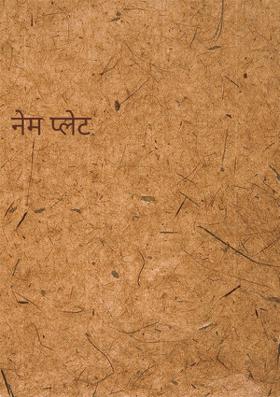 नेम प्लेट